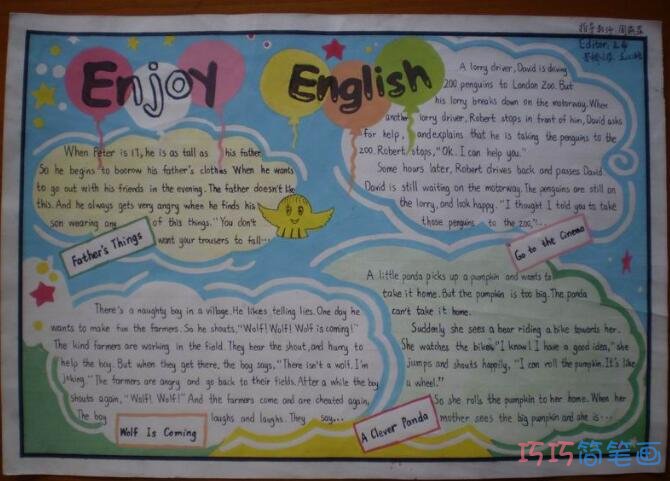 指导教师:周燕蕊
Editor:
Enjoy English
When Peter is 17, he is as tall as his father.
So he begins to boorow his father's clothes When he wants
to go out with his friends in the evening. The father doesn't like
this. And he always gets very angry when he finds his
son wearing any of this things. "You don't
want your trousers to fall...
Father's Things
A lorry driver, David is driving
200 penguins to London Zoo. But
his lorry breaks down on the motorway. When
another lorry driver, Robert stops in front of him, David asks
for help, and explains that he is taking the penguins to the
zoo. Robert stops, "Ok. I can help you."
Some hours later, Robert drives back and passes David.
David is still waiting on the motorway. The penguins are still on
the lorry, and look happy. "I thought I told you to take
those penguins to the zoo,"...
Go to the Cinema
There's a naughty boy in a village. He likes telling lies. One day he
wants to make fun the farmers. So he shouts, "Wolf! Wolf! Wolf is coming!"
The kind farmers are working in the field. They hear the shout, and hurry to
help the boy. But when they get there, the boy says, "There isn't a wolf. I'm
joking." The farmers are angry and go back to their fields. After a while the boy
shouts again, "Wolf! Wolf!" And the farmers come and are cheated again,
The boy laughs and laughs. They say...
Wolf Is Coming
A little panda picks up a pumpkin and wants to
take it home. But the pumpkin is too big. The panda
can't take it home.
Suddenly she sees a bear riding a bike towards her.
She watches the bike. "I know! I have a good idea," she
jumps and shouts happily, "I can roll the pumpkin. It's like
a wheel."
So she rolls the pumpkin to her home. When her
mother sees the big pumpkin and she is...
A Clever Panda
巧巧简笔画